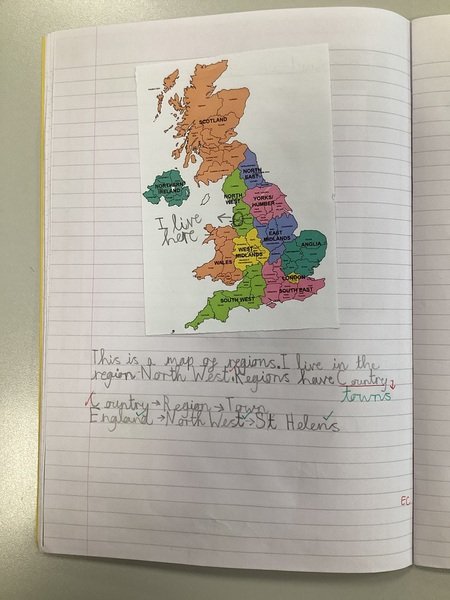 SCOTLAND
NORTHERN
IRELAND
NORTH
EAST
NORTH
WEST
YORKS/
HUMBER
I live
here
EAST
MIDLANDS
WEST
MIDLANDS
ANGLIA
WALES
LONDON
SOUTH EAST
SOUTH WEST
This is a map of regions. I live in the
region North West. Regions have Country
towns
Country → Region → Town
England → North West → St Helens
EC